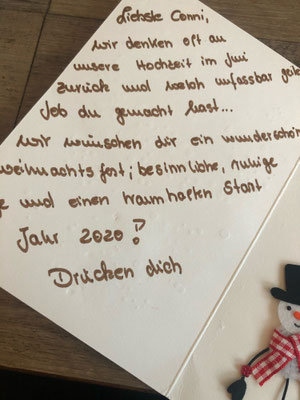 Liebste Conni,
wir denken oft an
unsere Hochzeit im Juni
zurück und welch unfassbar geilen
Job du gemacht hast...
Wir wünschen dir ein wunderschön
weihnachtsfest; besinnliche, ruhige
und einen traumhaften Start
Jahr 2020!
Drücken dich